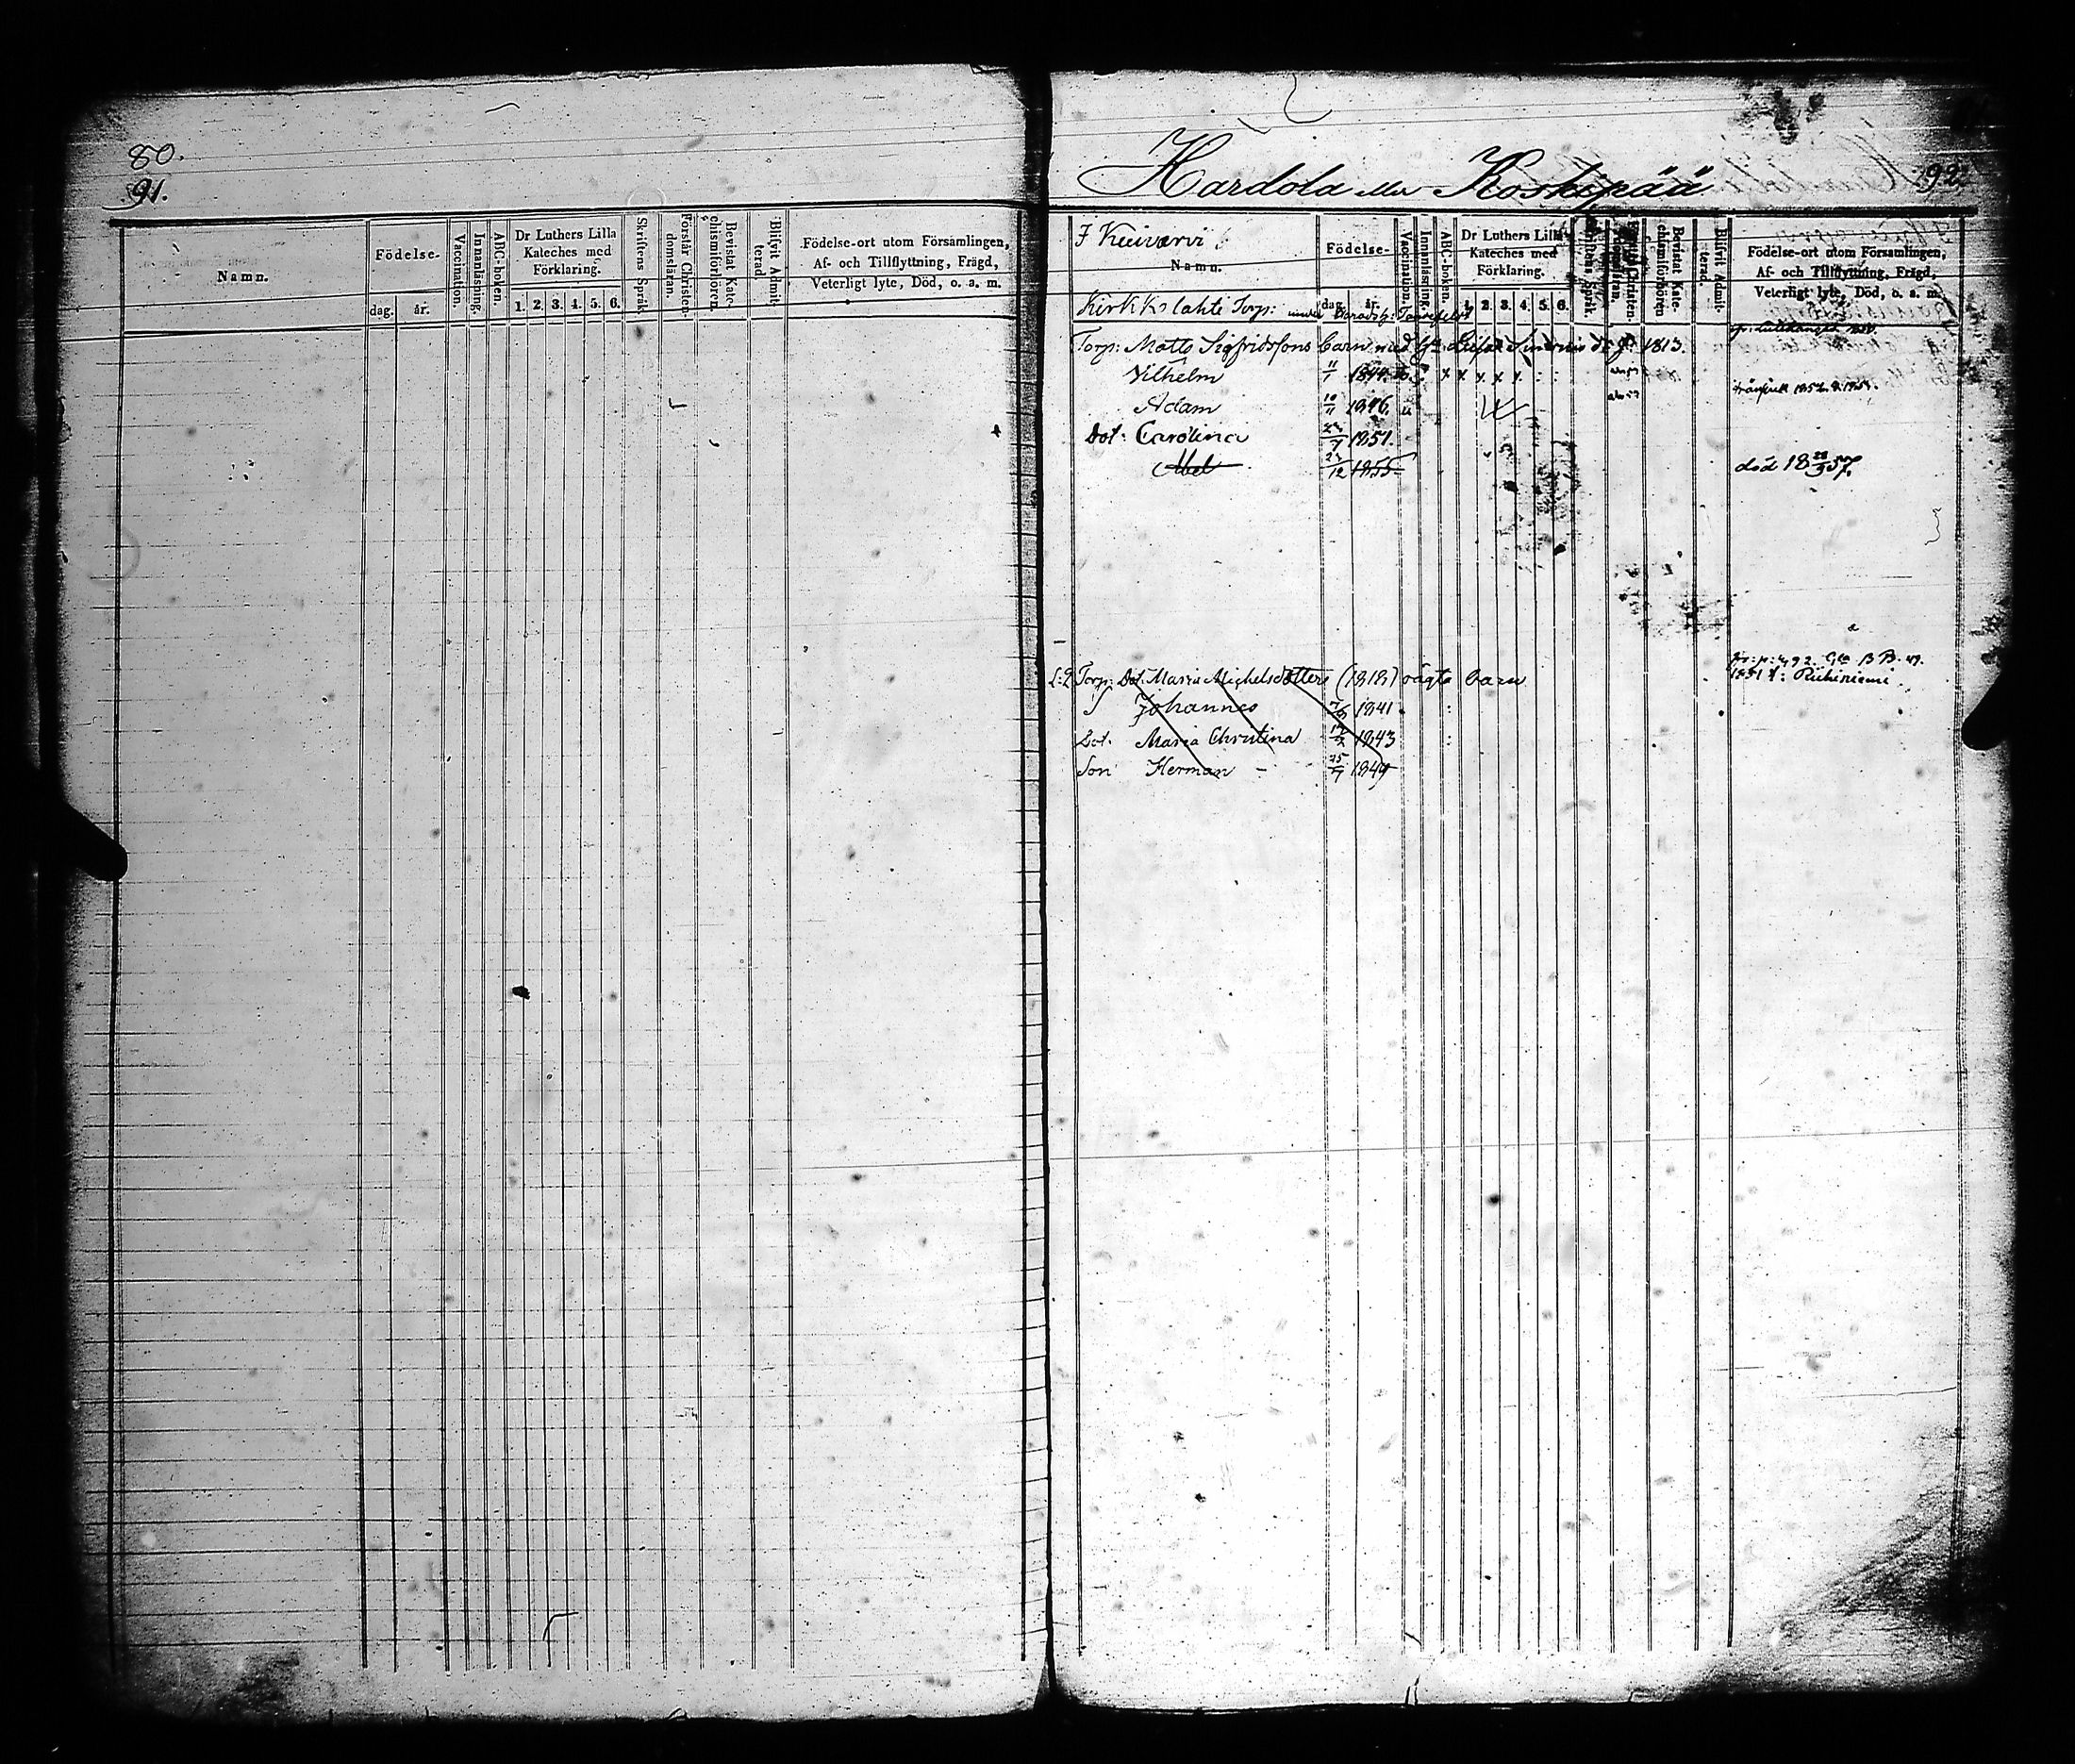 80.
91.
Namn.
Födelse-
dag. år.
Vaccination.
Innanläsning.
ABC-boken.
Dr Luthers Lilla
Kateches med
Förklaring.
1. 2. 3. 4. 5. 6.
Skriftens Språk.
Förstår Christen-
domsläran.
Bevistat Kate-
chismiförhören.
Blifvit Admit-
terad.
Födelse-ort utom Församlingen,
Af- och Tillflyttning, Frägd,
Veterligt lyte, Död, o. a. m.
Hardola eller Koskipää
92
Namn.
Födelse-
dag. år.
Vaccination.
Innanläsning.
ABC-boken.
Dr Luthers Lilla
Kateches med
Förklaring.
1. 2. 3. 4. 5. 6.
Bevistat Kate-
chismiförhören
Blifvit Admit-
terad.
Födelse-ort utom Församlingen,
Af- och Tillflyttning, Frägd,
Veterligt lyte, Död, o. a. m.
Kirkkolahti Torp: under
Torp: Matts Sigfridssons barn med 1813.
Vilhelm 11/1 1844. x x x x x
Adam 10/11 1846.
Dot: Carolina 1851.
Abel 23/12 1855
död 18
Torp: Dot. Maria Michelsdotters (1818) oägta barn
Johannes 1841
Dot. Maria Christina 1843
Son Herman - 25/7 1849